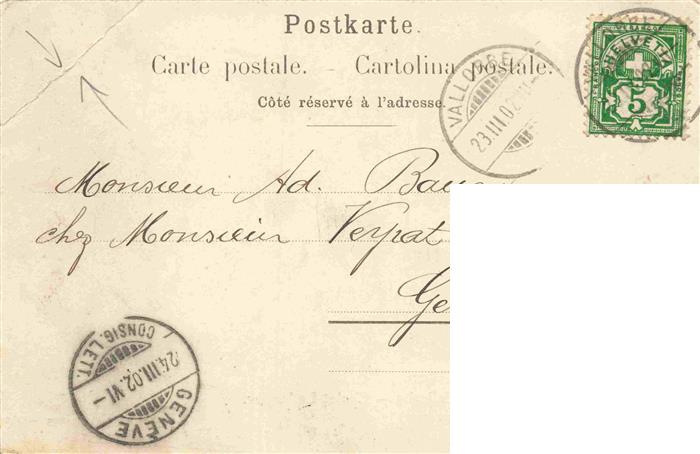 Postkarte.
Carte postale. Cartolina postale.
Côté réservé à l'adresse.
HELVETIA
5
VALLORBE
23.III.02
Monsieur Ad.
chez Monsieur Verpat
GENÈVE
24.III.02.VI–
CONSIG. LETT.